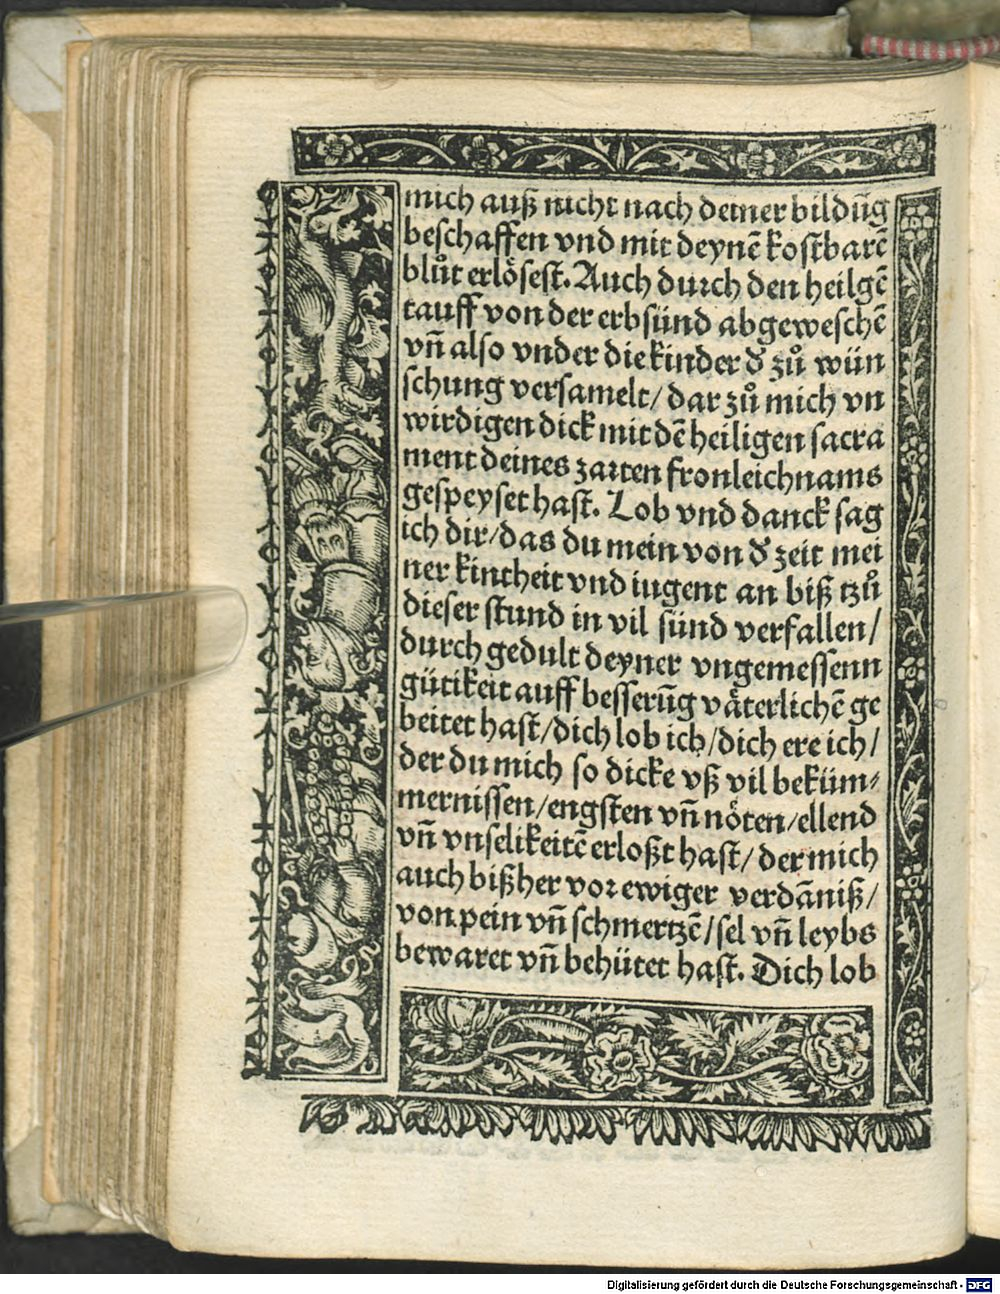 mich auß nicht nach deiner bildūg
beschaffen vnd mit deynē kostbarē
blůt erlösest. Auch durch den heilgē
tauff von der erbsünd abgeweschē
vn̄ also vnder die kinder d̕ zů wün
schung versamelt/ dar zů mich vn
wirdigen dick mit dē heiligen sacra
ment deines zarten fronleichnams
gespeyset hast. Lob vnd danck sag
ich dir/das du mein von d̕ zeit mei
ner kintheit vnd iugent an biß tzů
dieser stund in vil sünd verfallen/
durch gedult deyner vngemessenn
gütikeit auff besserūg väterlichē ge
beitet hast/dich lob ich/dich ere ich/
der du mich so dicke vß vil beküm⸗
mernissen/engsten vn̄ nöten/ellend
vn̄ vnselikeitē erloßt hast/ der mich
auch bißher vor ewiger verdāniß/
von pein vn̄ schmertzē/sel vn̄ leybs
bewaret vn̄ behütet hast. Dich lob
Digitalisierung gefördert durch die Deutsche Forschungsgemeinschaft - DFG